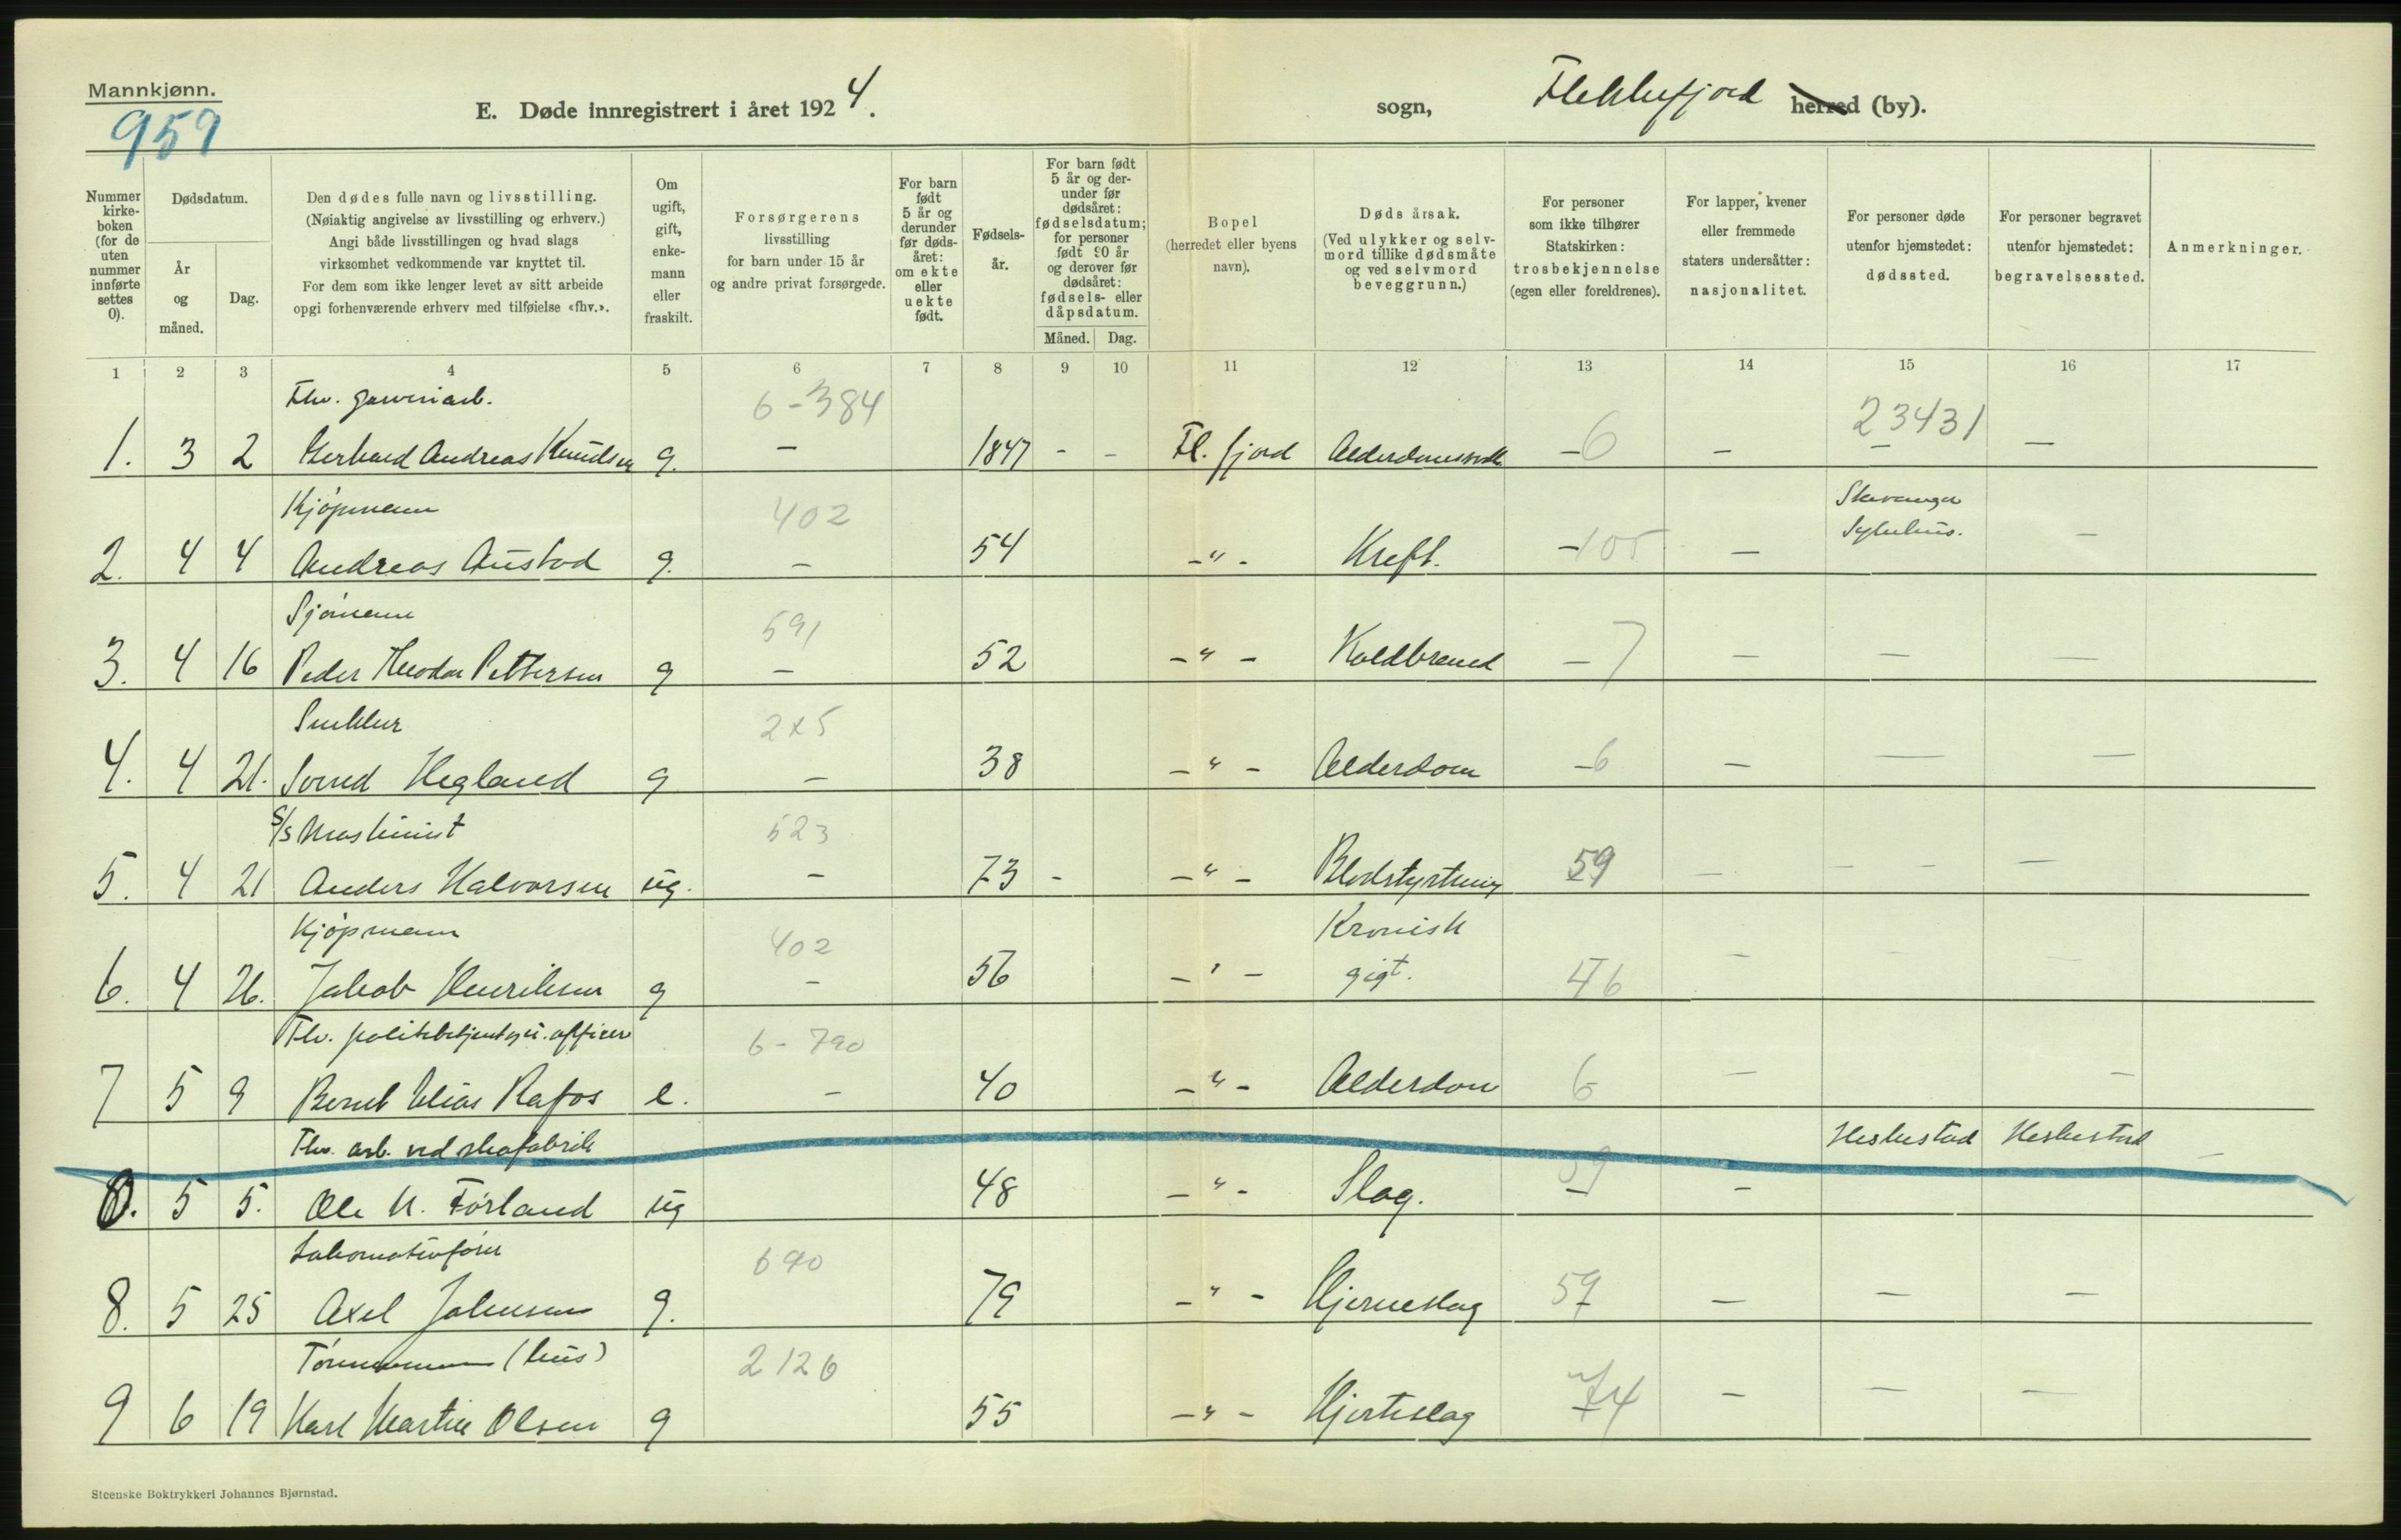 Mannkjønn.
959
E. Døde innregistrert i året 1924.
sogn, Flekkefjord herred (by).
Nummer kirke-boken (for de uten nummer innførte settes 0).
Dødsdatum.
År og måned.
Dag.
Den dødes fulle navn og livsstilling.
(Nøiaktig angivelse av livsstilling og erhverv.)
Angi både livsstillingen og hvad slags
virksomhet vedkommende var knyttet til.
For dem som ikke lenger levet av sitt arbeide
opgi forhenværende erhverv med tilføielse «fhv.».
Om ugift, gift, enke-mann eller fraskilt.
Forsørgerens
livsstilling
for barn under 15 år
og andre privat forsørgede.
For barn født 5 år og derunder før døds-året: om ekte eller uekte født.
Fødsels-år.
For barn født 5 år og der-under før dødsåret: fødselsdatum; for personer født 90 år og derover før dødsåret: fødsels- eller dåpsdatum.
Måned. Dag.
Bopel
(herredet eller byens
navn).
Døds årsak.
(Ved ulykker og selv-
mord tillike dødsmåte
og ved selvmord
beveggrunn.)
For personer
som ikke tilhører
Statskirken:
trosbekjennelse
(egen eller foreldrenes).
For lapper, kvener
eller fremmede
staters undersåtter:
nasjonalitet.
For personer døde
utenfor hjemstedet:
dødssted.
For personer begravet
utenfor hjemstedet:
begravelsessted.
Anmerkninger.
1 2 3 4 5 6 7 8 9 10 11 12 13 14 15 16 17
Fhv. garveriarb. 6-384 23431
1. 3 2 Gerhard Andreas Knudsen g. - 1847 - - Fl. fjord - 6 - - -
Kjøpmann 402 Stavanger
Sykehus.
2. 4 4 Andreas Austad g. - 54 -"- Kreft. - 105 - -
Sjømann 591
3. 4 16 Peder Theodor Pettersen g - 52 -"- Koldbrand - 7 - - -
Snekker 2x5
4. 4 21. Hegland g - 38 -"- Alderdom - 6 - - -
S/s Maskinist 523
5. 4 21 Anders Halvorsen ug. - 73 - -"- Blodstyrtning 59 - - - -
Kjøpmann 402 Kronisk
6. 4 26. Jakob Henriksen g - 56 -"- gigt. 46 - - -
Fhv. politibetjent 6-790
7 5 9 Bernt Elias Rafos e. - 40 -"- Alderdom 6 - -
Fhv. arb. ved skofabrik Heskestad Heskestad -
0. 5 5. Ole N. Førland ug 48 -"- Slag. 59 - -
Lokomotivfører 690
8. 5 25 Axel Johnsen g. 79 -"- Hjerneslag 57 - - -
Tømmermann (hus) 2126
9 6 19 Karl Martin Olsen g 55 -"- Hjerteslag 74 - - -
Steenske Boktrykkeri Johannes Bjørnstad.